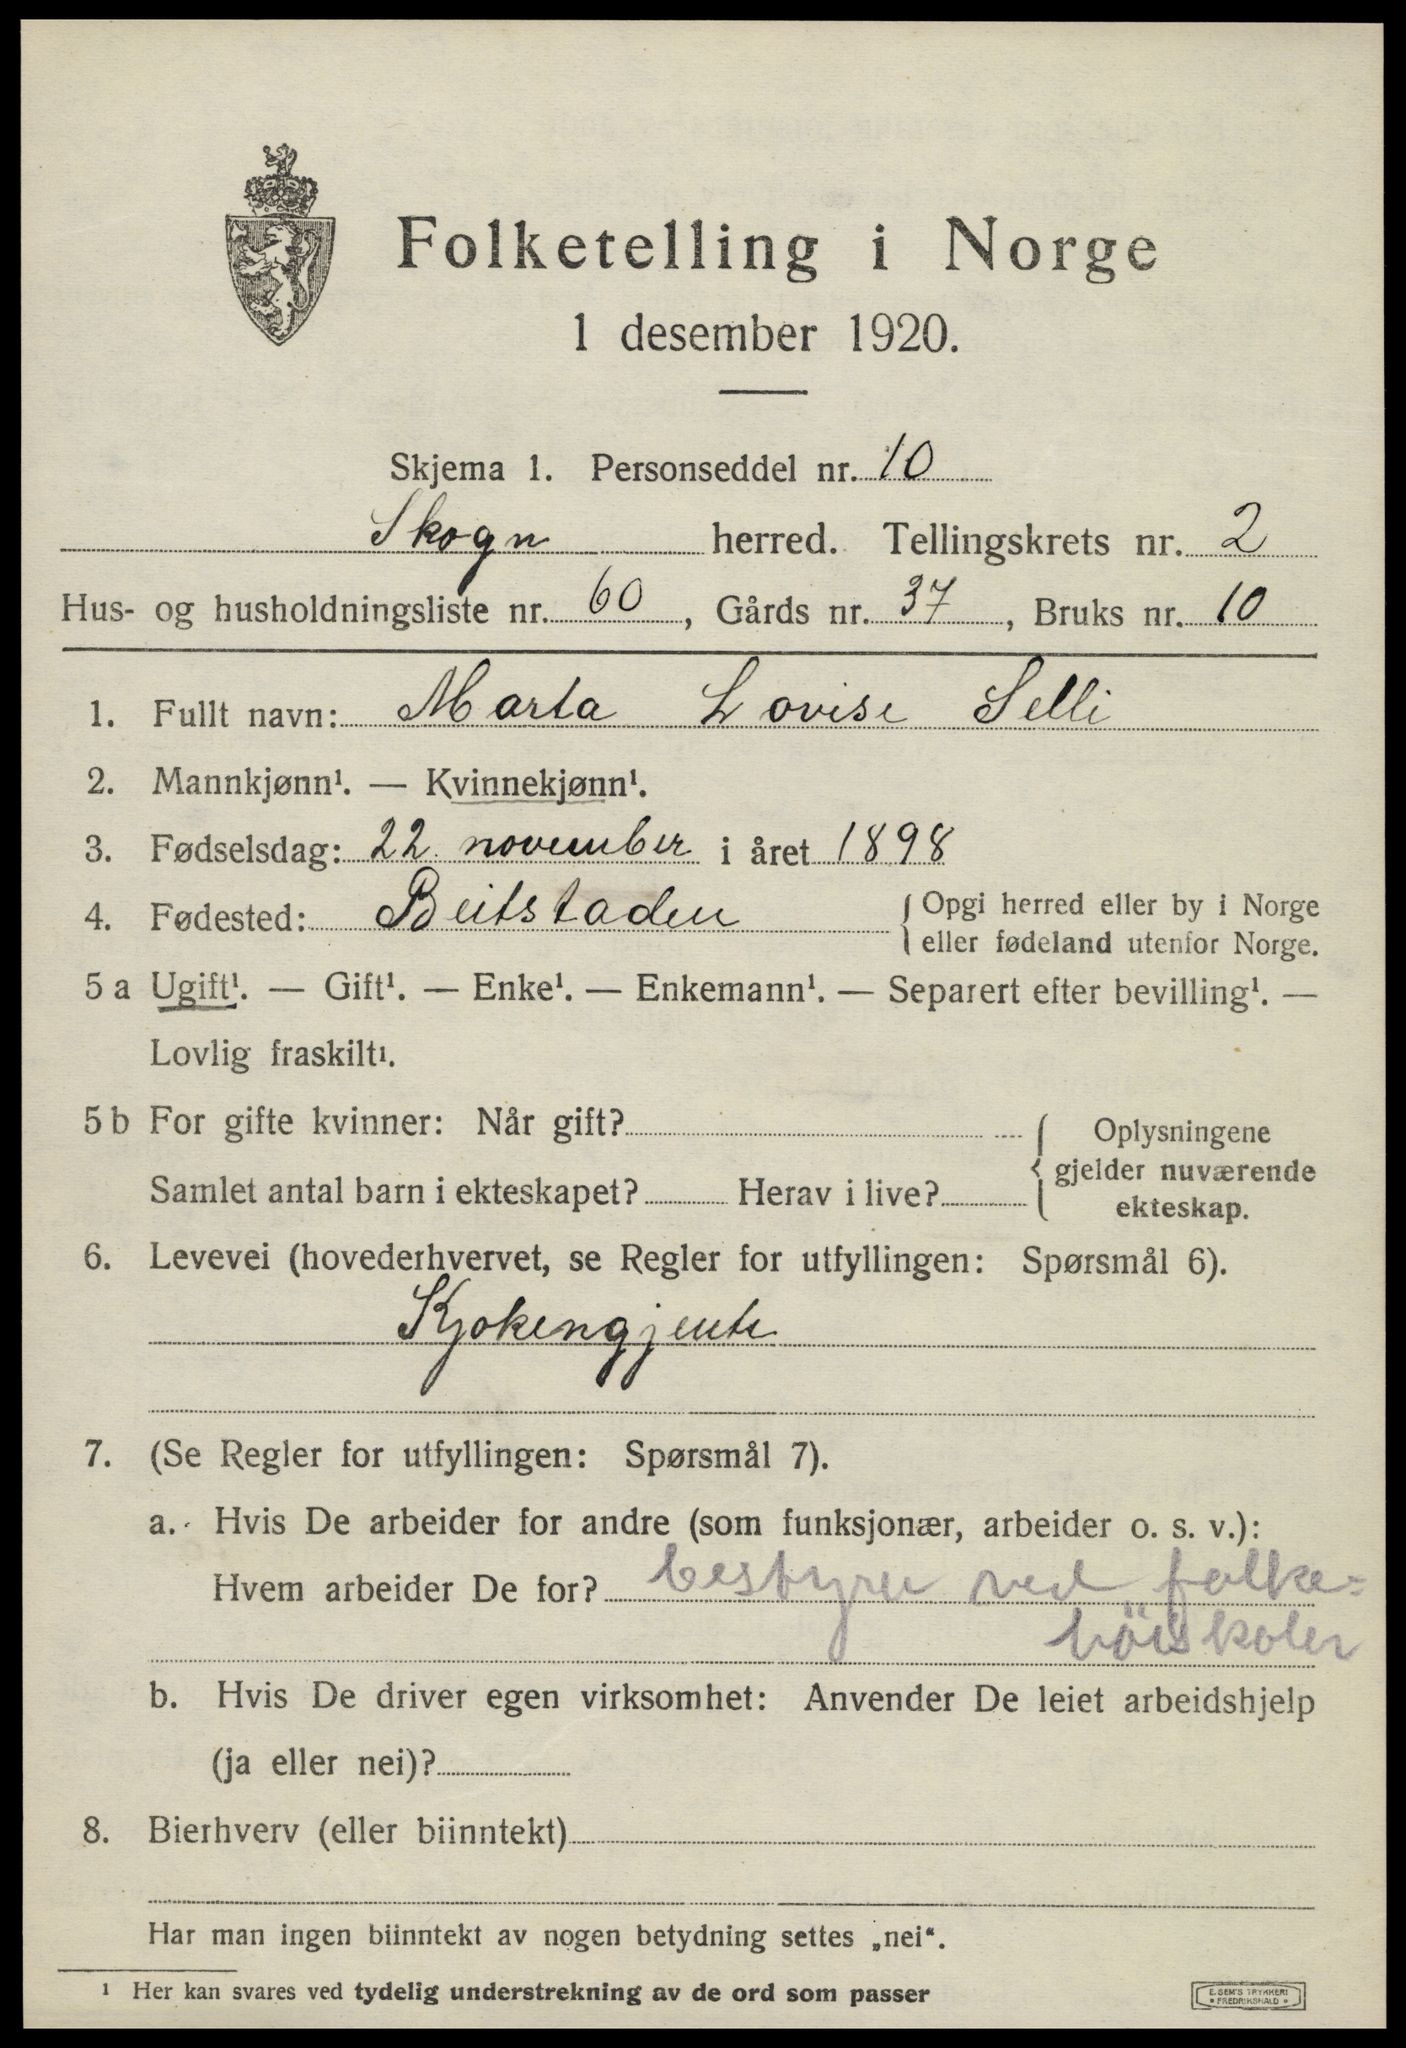 Folketelling i Norge
1 desember 1920.
Skjema 1. Personseddel nr. 10
Skogn herred. Tellingskrets nr. 2
Hus- og husholdningsliste nr. 60, Gårds nr. 37, Bruks nr. 10
1. Fullt navn: Marta Lovise Selli
2. Mannkjønn¹. — Kvinnekjønn¹.
3. Fødselsdag: 22 november i året 1898
4. Fødested: Beitstaden { Opgi herred eller by i Norge
eller fødeland utenfor Norge.
5 a Ugift¹. — Gift¹. — Enke¹. — Enkemann¹. — Separert efter bevilling¹. —
Lovlig fraskilt¹.
5 b For gifte kvinner: Når gift? { Oplysningene
gjelder nuværende
Samlet antal barn i ekteskapet? Herav i live? ekteskap.
6. Levevei (hovederhvervet, se Regler for utfyllingen: Spørsmål 6).
Kjokengjente
7. (Se Regler for utfyllingen: Spørsmål 7).
a. Hvis De arbeider for andre (som funksjonær, arbeider o. s. v.):
Hvem arbeider De for? bestyrer ved folke-
höiskolen
b. Hvis De driver egen virksomhet: Anvender De leiet arbeidshjelp
(ja eller nei)?
8. Bierhverv (eller biinntekt)
Har man ingen biinntekt av nogen betydning settes „nei“.
¹ Her kan svares ved tydelig understrekning av de ord som passer
E. SEM'S TRYKKERI
• FREDRIKSHALD •